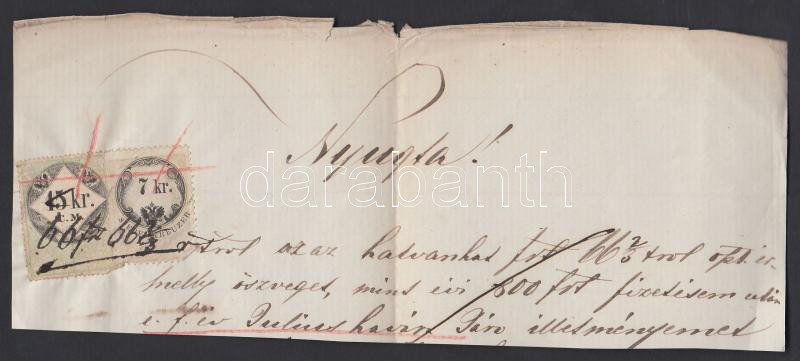 Nyugta!
15 kr.
C.M.
7 kr.
KREUZER
66 f 66 2/3
öttrol azaz hatvanhat frt 66 2/3 trol opt. ér-
melly öszveget, mint évi 800 frt fizetésem után
e. f. év Julius havára járó illetményemet
darabanth